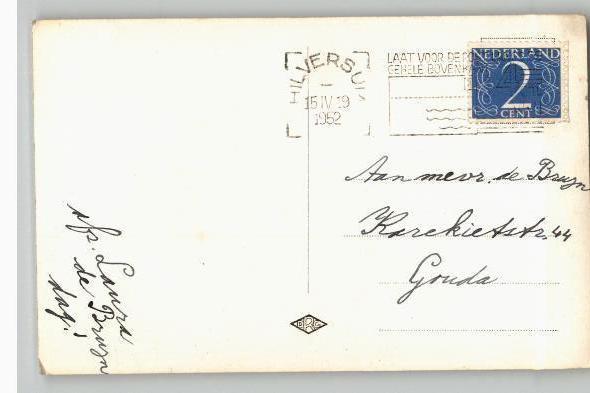 HILVERSUM
15 IV 19
1952
LAAT VOOR DE PO
GEHELE BOVENK
NEDERLAND
2
CENT
Aan mevr. de Bruyn
Karekietstr. 44
Gouda
afs. Laura
de Bruyn
dag!